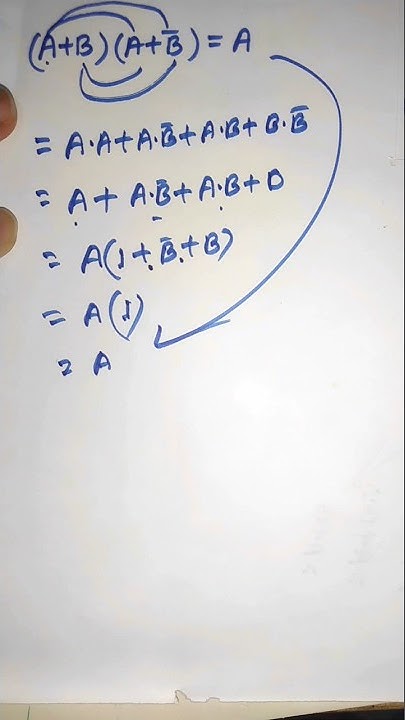 (A+B)(A+B̅)=A
= A·A+A·B̅+A·B+B·B̅
= A+A·B̅+A·B+0
= A(1+B̅+B)
= A(1)
= A